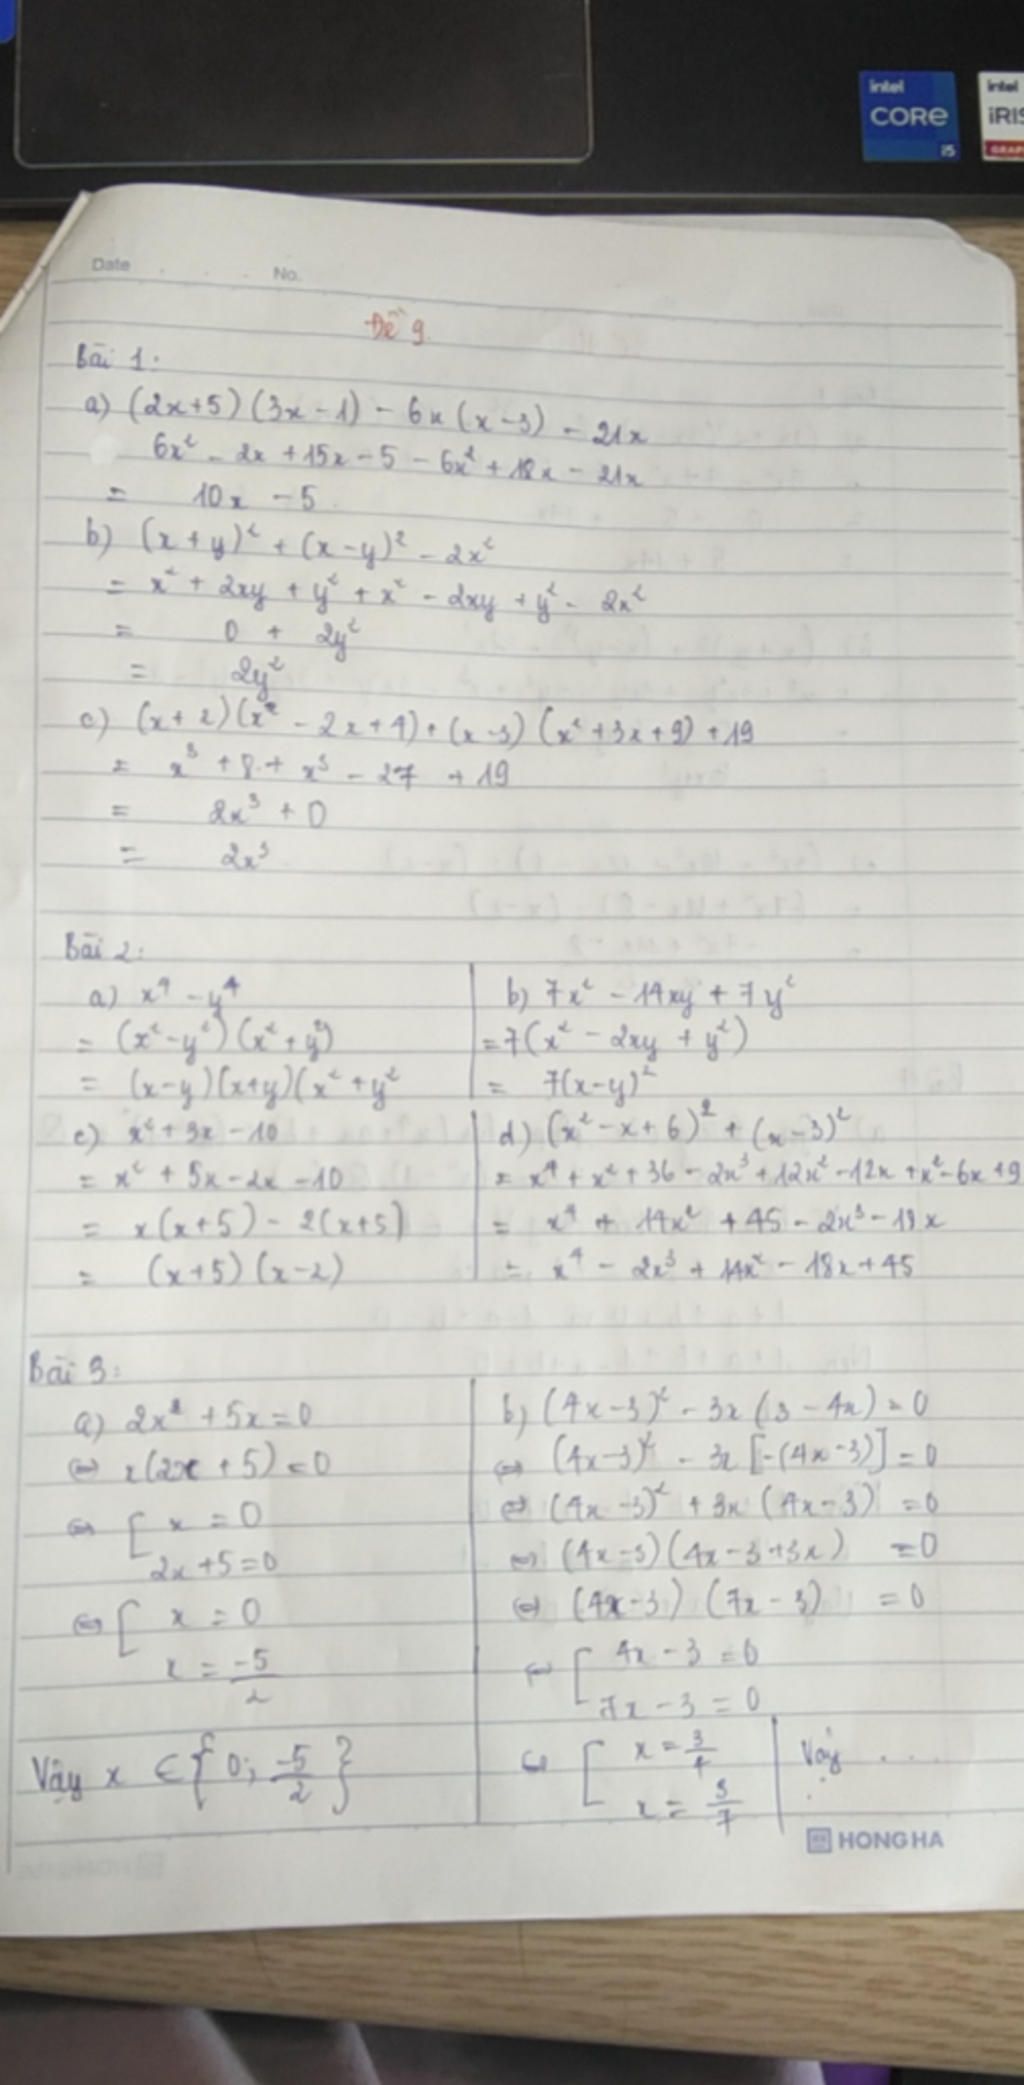 intel
CORE
i5
intel
iRIS
GRAP
Date
No.
Đề 9.
Bài 1:
a) (2x+5)(3x-1) - 6x(x-3) - 21x
6x² - 2x + 15x - 5 - 6x² + 18x - 21x
= 10x - 5
b) (x+y)² + (x-y)² - 2x²
= x² + 2xy + y² + x² - 2xy + y² - 2x²
= 0 + 2y²
= 2y²
c) (x+2)(x² - 2x+4) + (x-3)(x²+3x+9) +19
= x³ + 8 + x³ - 27 + 19
= 2x³ + 0
= 2x³
Bài 2:
a) x⁴ - y⁴
= (x²-y²)(x²+y²)
= (x-y)(x+y)(x²+y²
b) 7x² - 14xy + 7y²
= 7(x² - 2xy + y²)
= 7(x-y)²
c) x² + 3x - 10
= x² + 5x - 2x - 10
= x(x+5) - 2(x+5)
= (x+5)(x-2)
d) (x²-x+6)² + (x-3)²
= x⁴ + x² + 36 - 2x³ + 12x² - 12x + x² - 6x + 9
= x⁴ + 14x² + 45 - 2x³ - 18x
= x⁴ - 2x³ + 14x² - 18x + 45
Bài 3:
a) 2x² + 5x = 0
⇔ x(2x + 5) = 0
⇔ [ x = 0
2x+5=0
⇔ [ x = 0
x = -5/2
Vậy x ∈ {0; -5/2}
b) (4x-3)² - 3x(3-4x) = 0
⇔ (4x-3)² - 3x[-(4x-3)] = 0
⇔ (4x-3)² + 3x(4x-3) = 0
⇔ (4x-3)(4x-3+3x) = 0
⇔ (4x-3)(7x-3) = 0
⇔ [ 4x - 3 = 0
7x - 3 = 0
⇔ [ x = 3/4
x = 3/7
Vậy ....
HONG HA